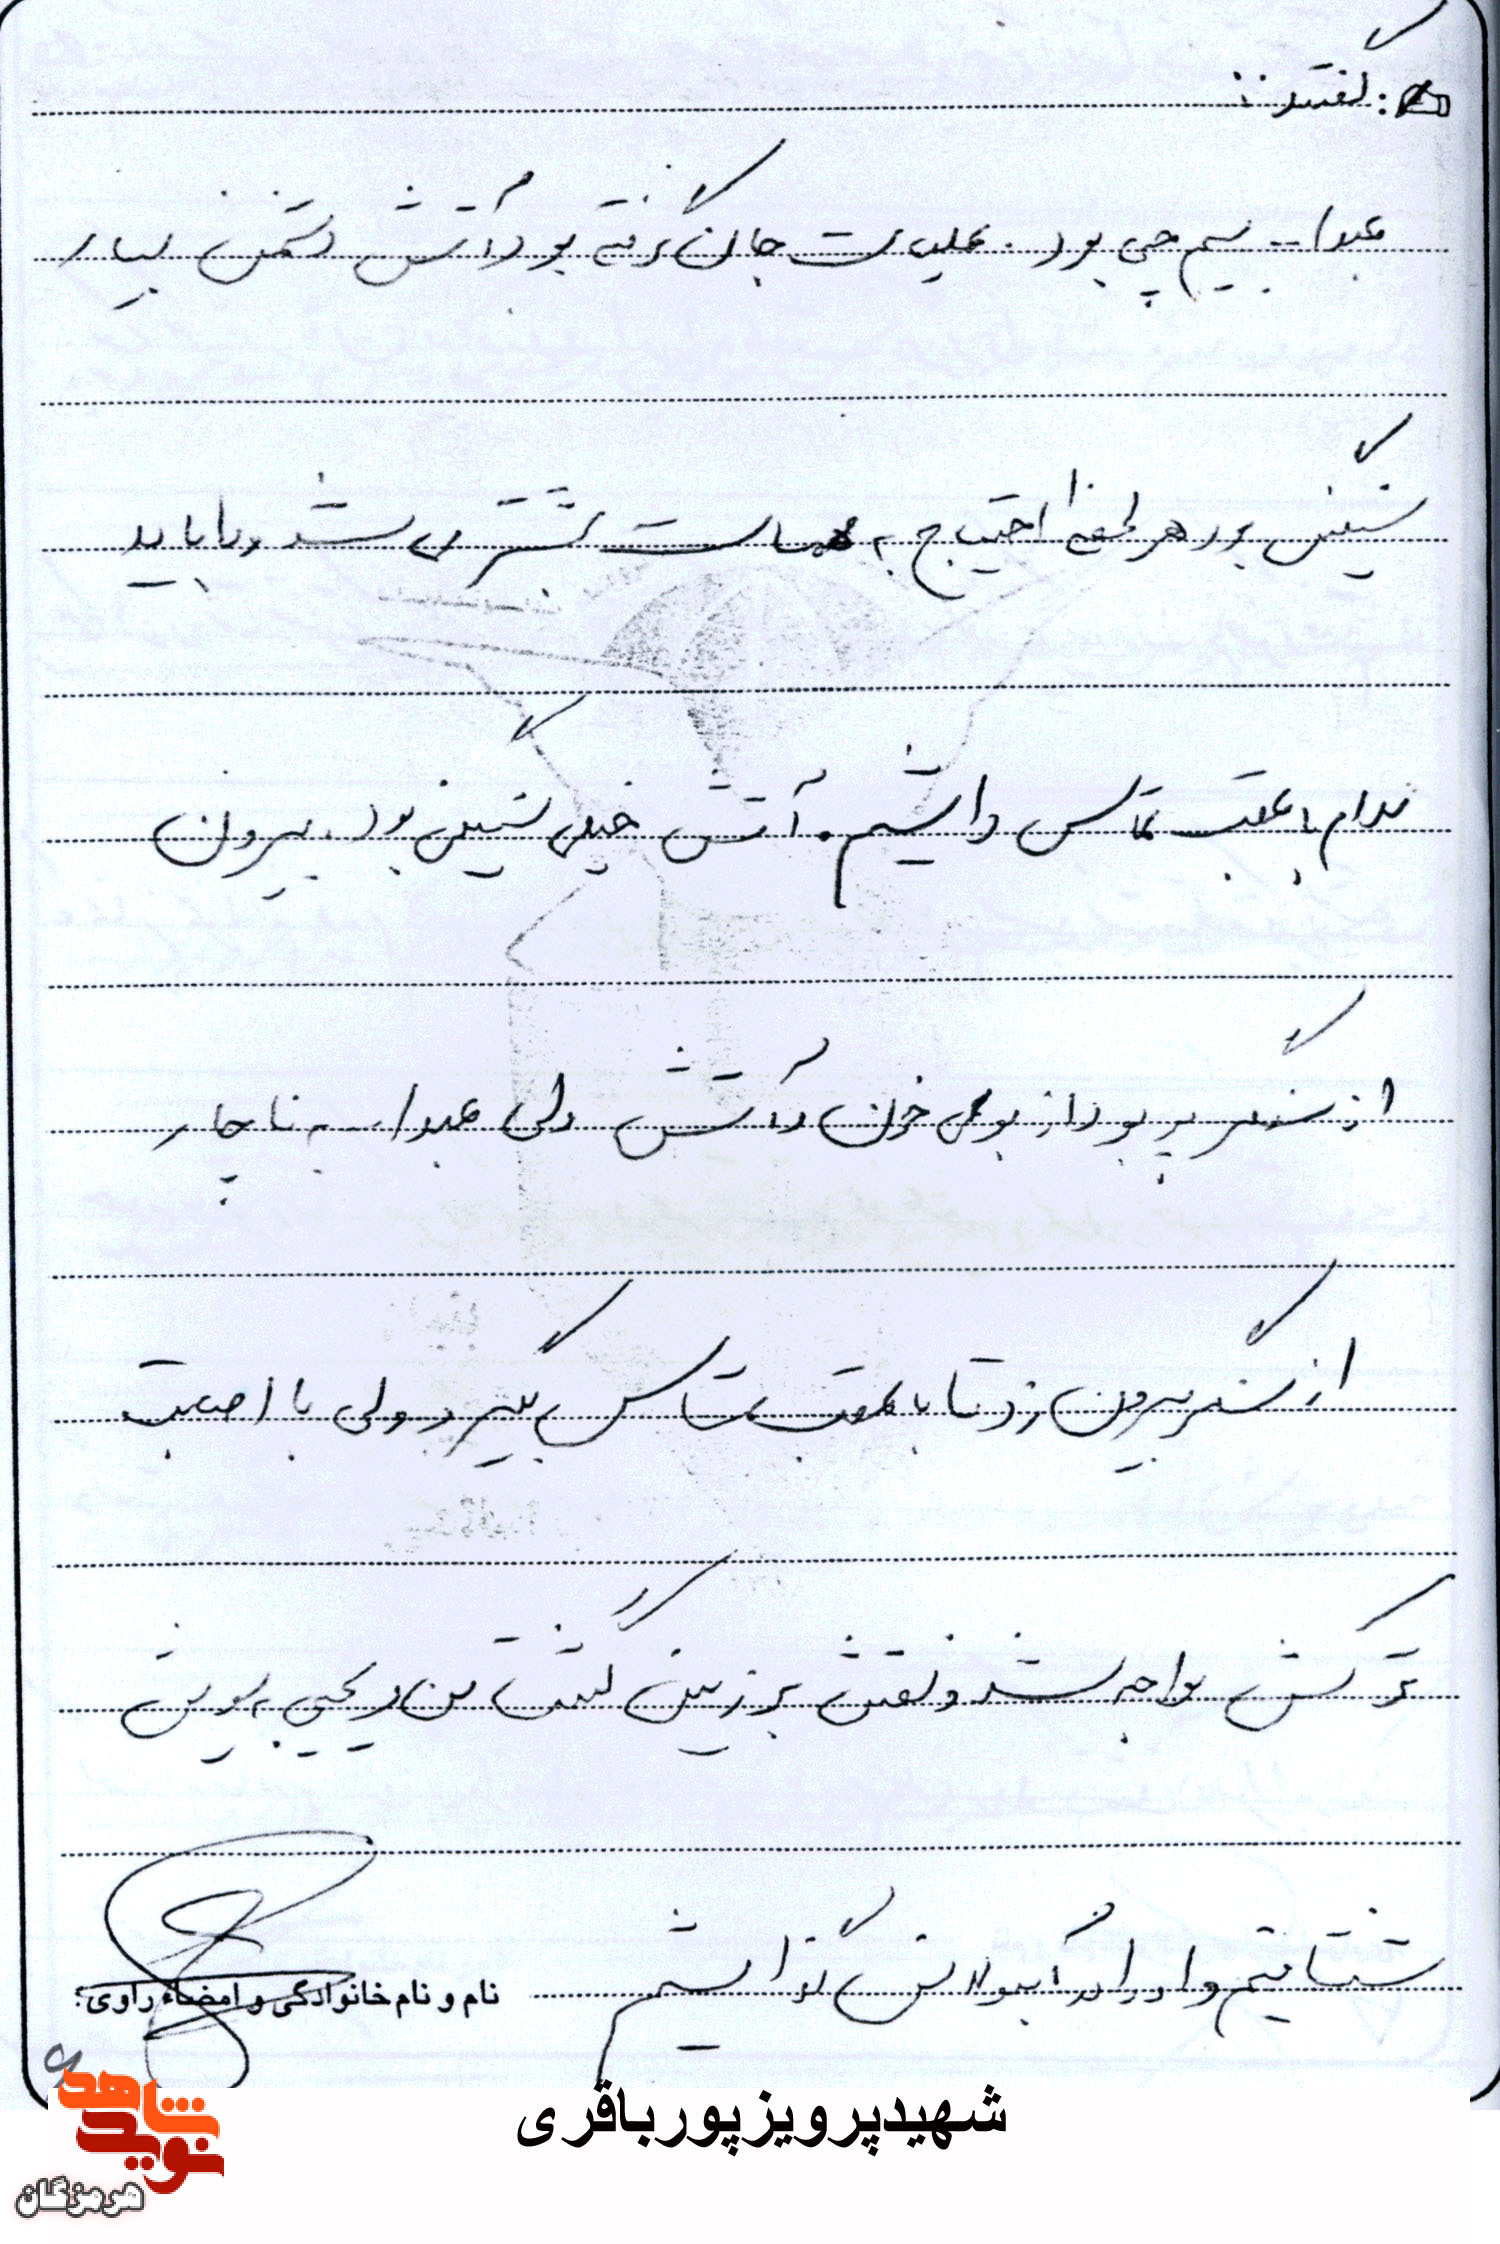 گفتند:
عبداله بیسیم چی بود. عملیات جان گرفته بود آتش دشمن بسیار
سنگین بود هر لحظه احتیاج به مهمات بیشتر می شد و ما باید
مدام با عقب تماس داشتیم. آتش خیلی سنگین بود. بیرون
از سنگر پر بود از بوی خون و آتش ولی عبداله به ناچار
از سنگر بیرون زد تا با عقب تماس بگیرد ولی با اصابت
ترکش مواجه شد و نقش بر زمین گشت من و یحیی به سویش
شتافتیم و او را در آمبولانس گذاشتیم
نام و نام خانوادگی و امضاء راوی:
شهید پرویز پور باقری
نوید شاهد
هرمزگان